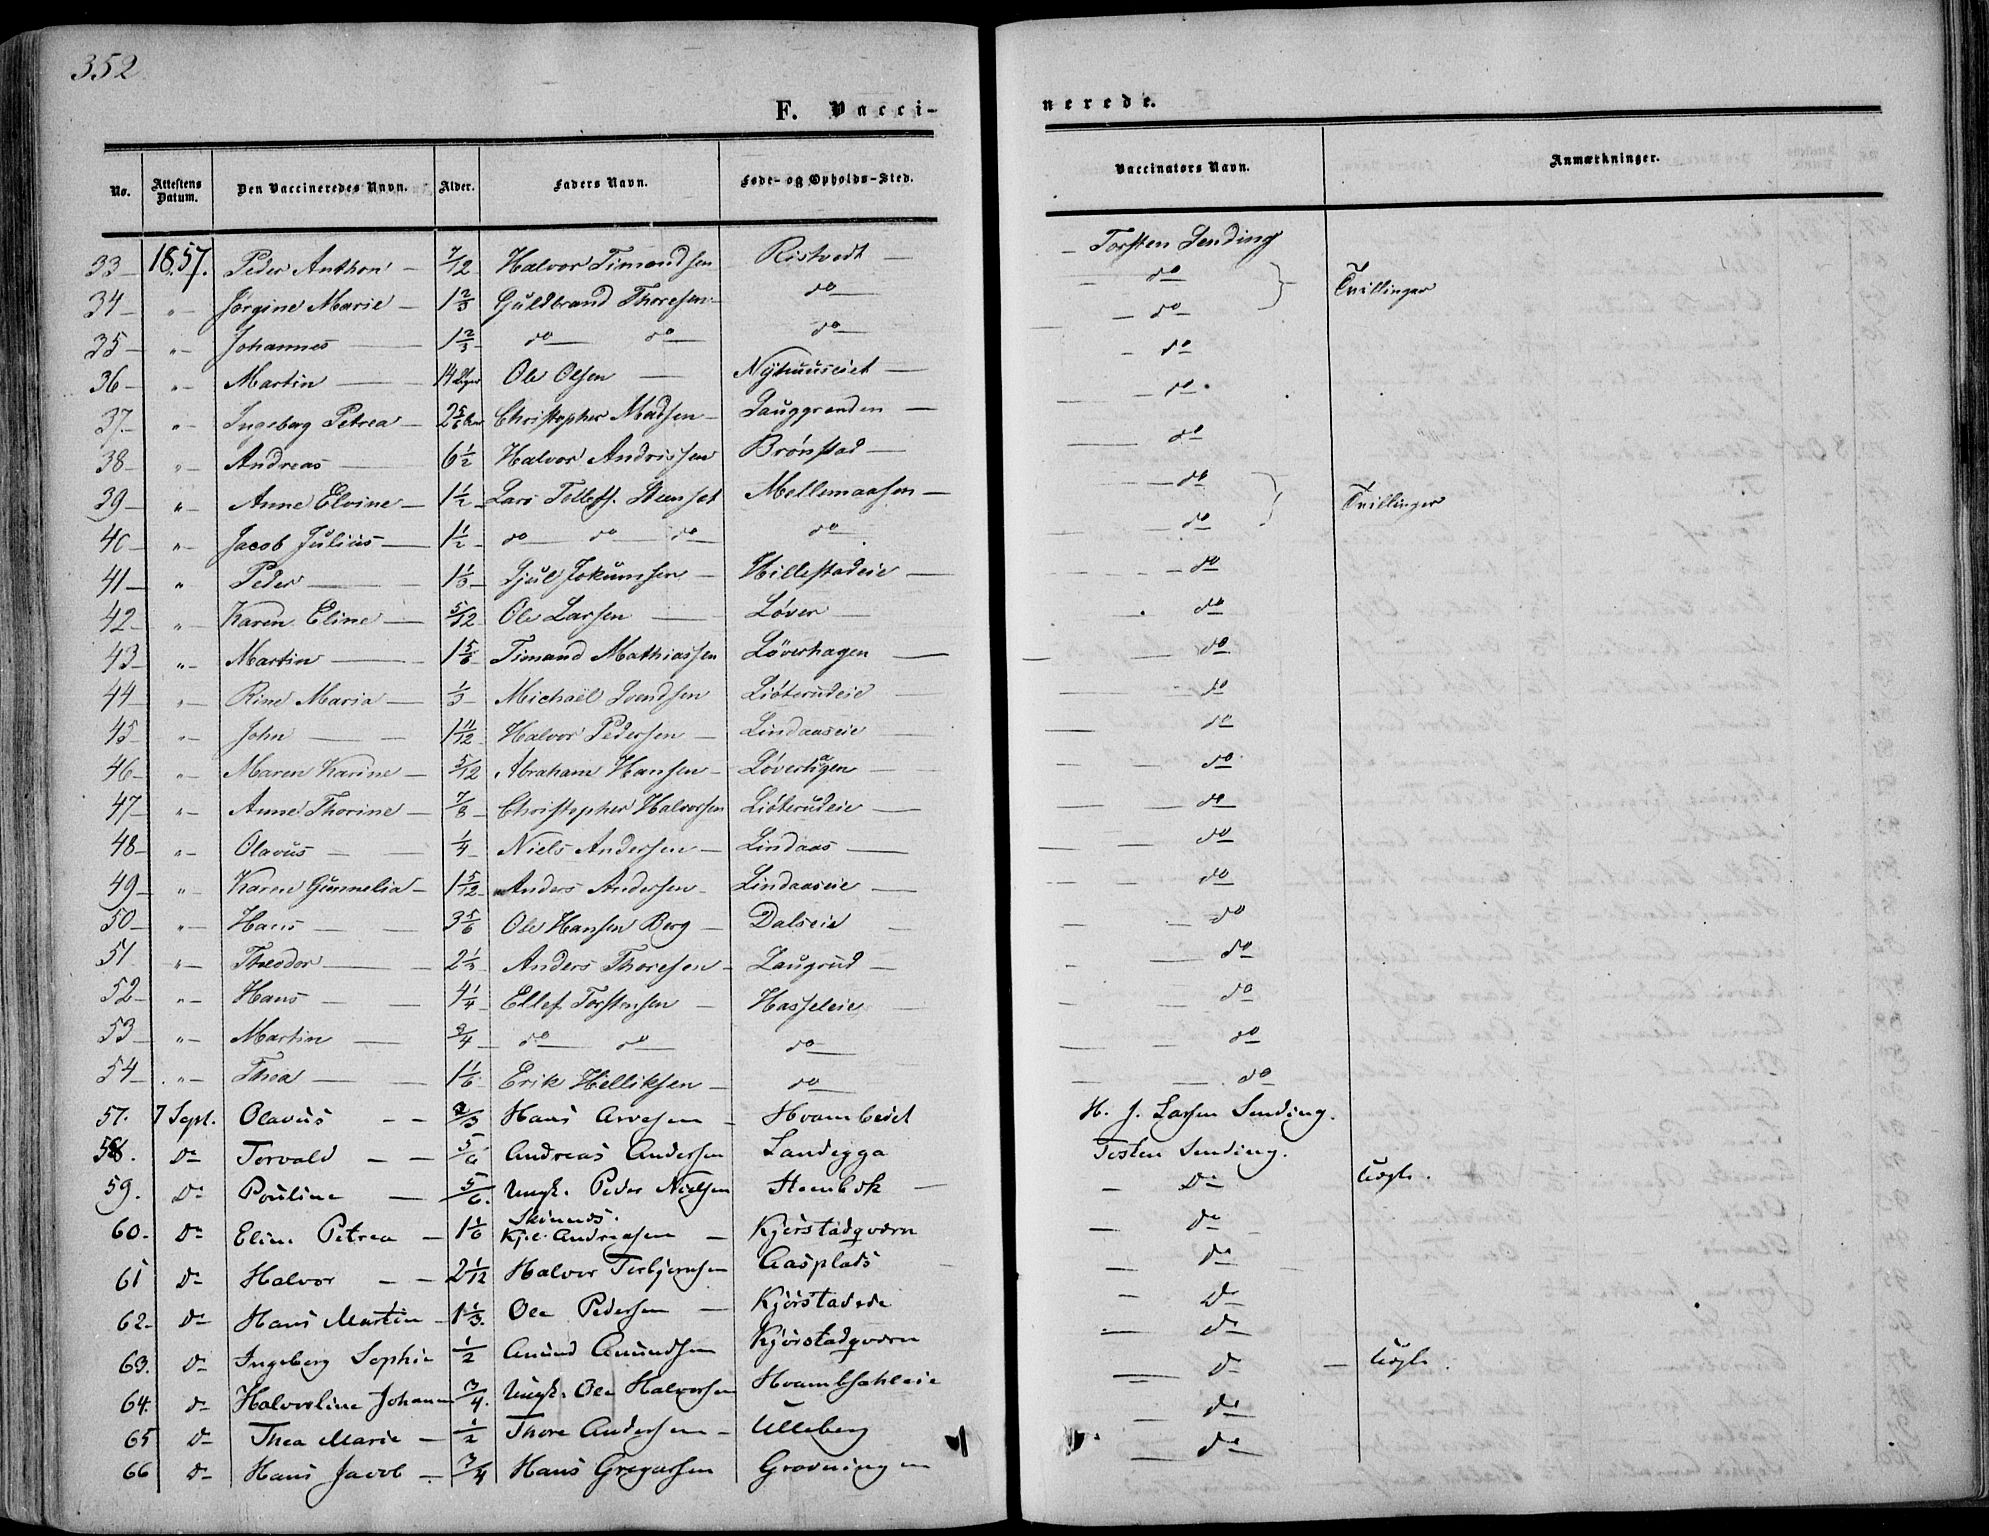 352
F. Vacci-
nerede.
No. Attestens Datum. Den Vaccineredes Navn. Alder. Faders Navn. Føde- og Opholds-Sted. Vaccinators Navn. Anmærkninger.
33 1857. Peder Anthon 7/12 Halvor Timandsen Ristvedt Torsten Sending
34 " Jørgine Marie 1 2/3 Guldbrand Thoresen do do Tvillinger
35 " Johannes 1 2/3 do do do do
36 " Martin 14 Ole Olsen do
37 " Ingeborg Petrea 2 5/6 Christopher Madsen do
38 " Andreas 6 1/2 Halvor Andrissen Brønstad do
39 " Anne Elvine 1 1/2 Lars Tollefs. Mellemaasen do Tvillinger
40 " Jacob Julius 1 1/2 do do do do do
41 " Peder 1 1/3 Gjul Jokumsen Hillestadeie do
42 " Karen Eline 5/12 Ole Larsen Løver do
43 " Martin 1 5/6 Timand Mathiassen Løverhagen do
44 " Rine Maria 1/3 Michaël Svendsen Liøterudeie do
45 " John 1 11/12 Halvor Pedersen Lindaaseie do
46 " Maren Karine 5/12 Abraham Hansen Løverhagen do
47 " Anne Thorine 7/8 Christopher Halvorsen Liøterudeie do
48 " Olavus 1/4 Niels Andersen Lindaas do
49 " Karen Gunnelia 1 5/12 Anders Andersen Lindaaseie do
50 " Hans 3 5/6 Ole Hansen Berg Dalseie do
51 " Theodor 2 1/3 Anders Thoresen Laugrud do
52 " Hans 4 1/4 Ellef Torstensen Hasseleie do
53 " Martin 3/4 do do do do
54 " Thea 1 1/6 Erik Helliksen do do
57. 7 Sept. Olavus 2/3 Hans Arvesen H. J. Larsen Sending.
58. Do Torvald 5/6 Andreas Andersen Landegga Tosten Sending.
59. Do Pouline 5/6. Ungk. Peder Nielsen Do Uægte.
60. Do Eline Petrea 1 1/6 Andreasen Kjørstadqværn Do
61 Do Halvor 2 1/12 Halvor Torbjørnsen Aasplads Do
62. Do Hans Martin 1 1/3. Ole Pedersen Do
63. Do Ingeborg Sophie 1/2 Amund Amundsen Kjørstadqværn Do
64. Do Halvorline Johanne 3/4. Ungk. Ole Halvorsen Do Uægte.
65 Do Thea Marie 1/2 Thore Andersen Ulleberg Do
66 Do Hans Jacob 3/4 Hans Gregarsen Grovningen Do